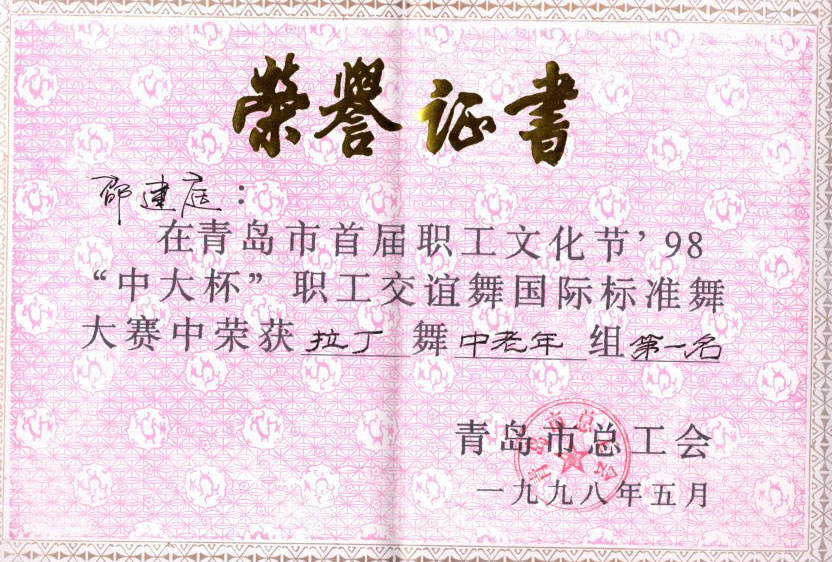 荣誉证书
邵建庭：
在青岛市首届职工文化节’98
“中大杯”职工交谊舞国际标准舞
大赛中荣获拉丁舞中老年组第一名
青岛市总工会
一九九八年五月
青岛市总工会